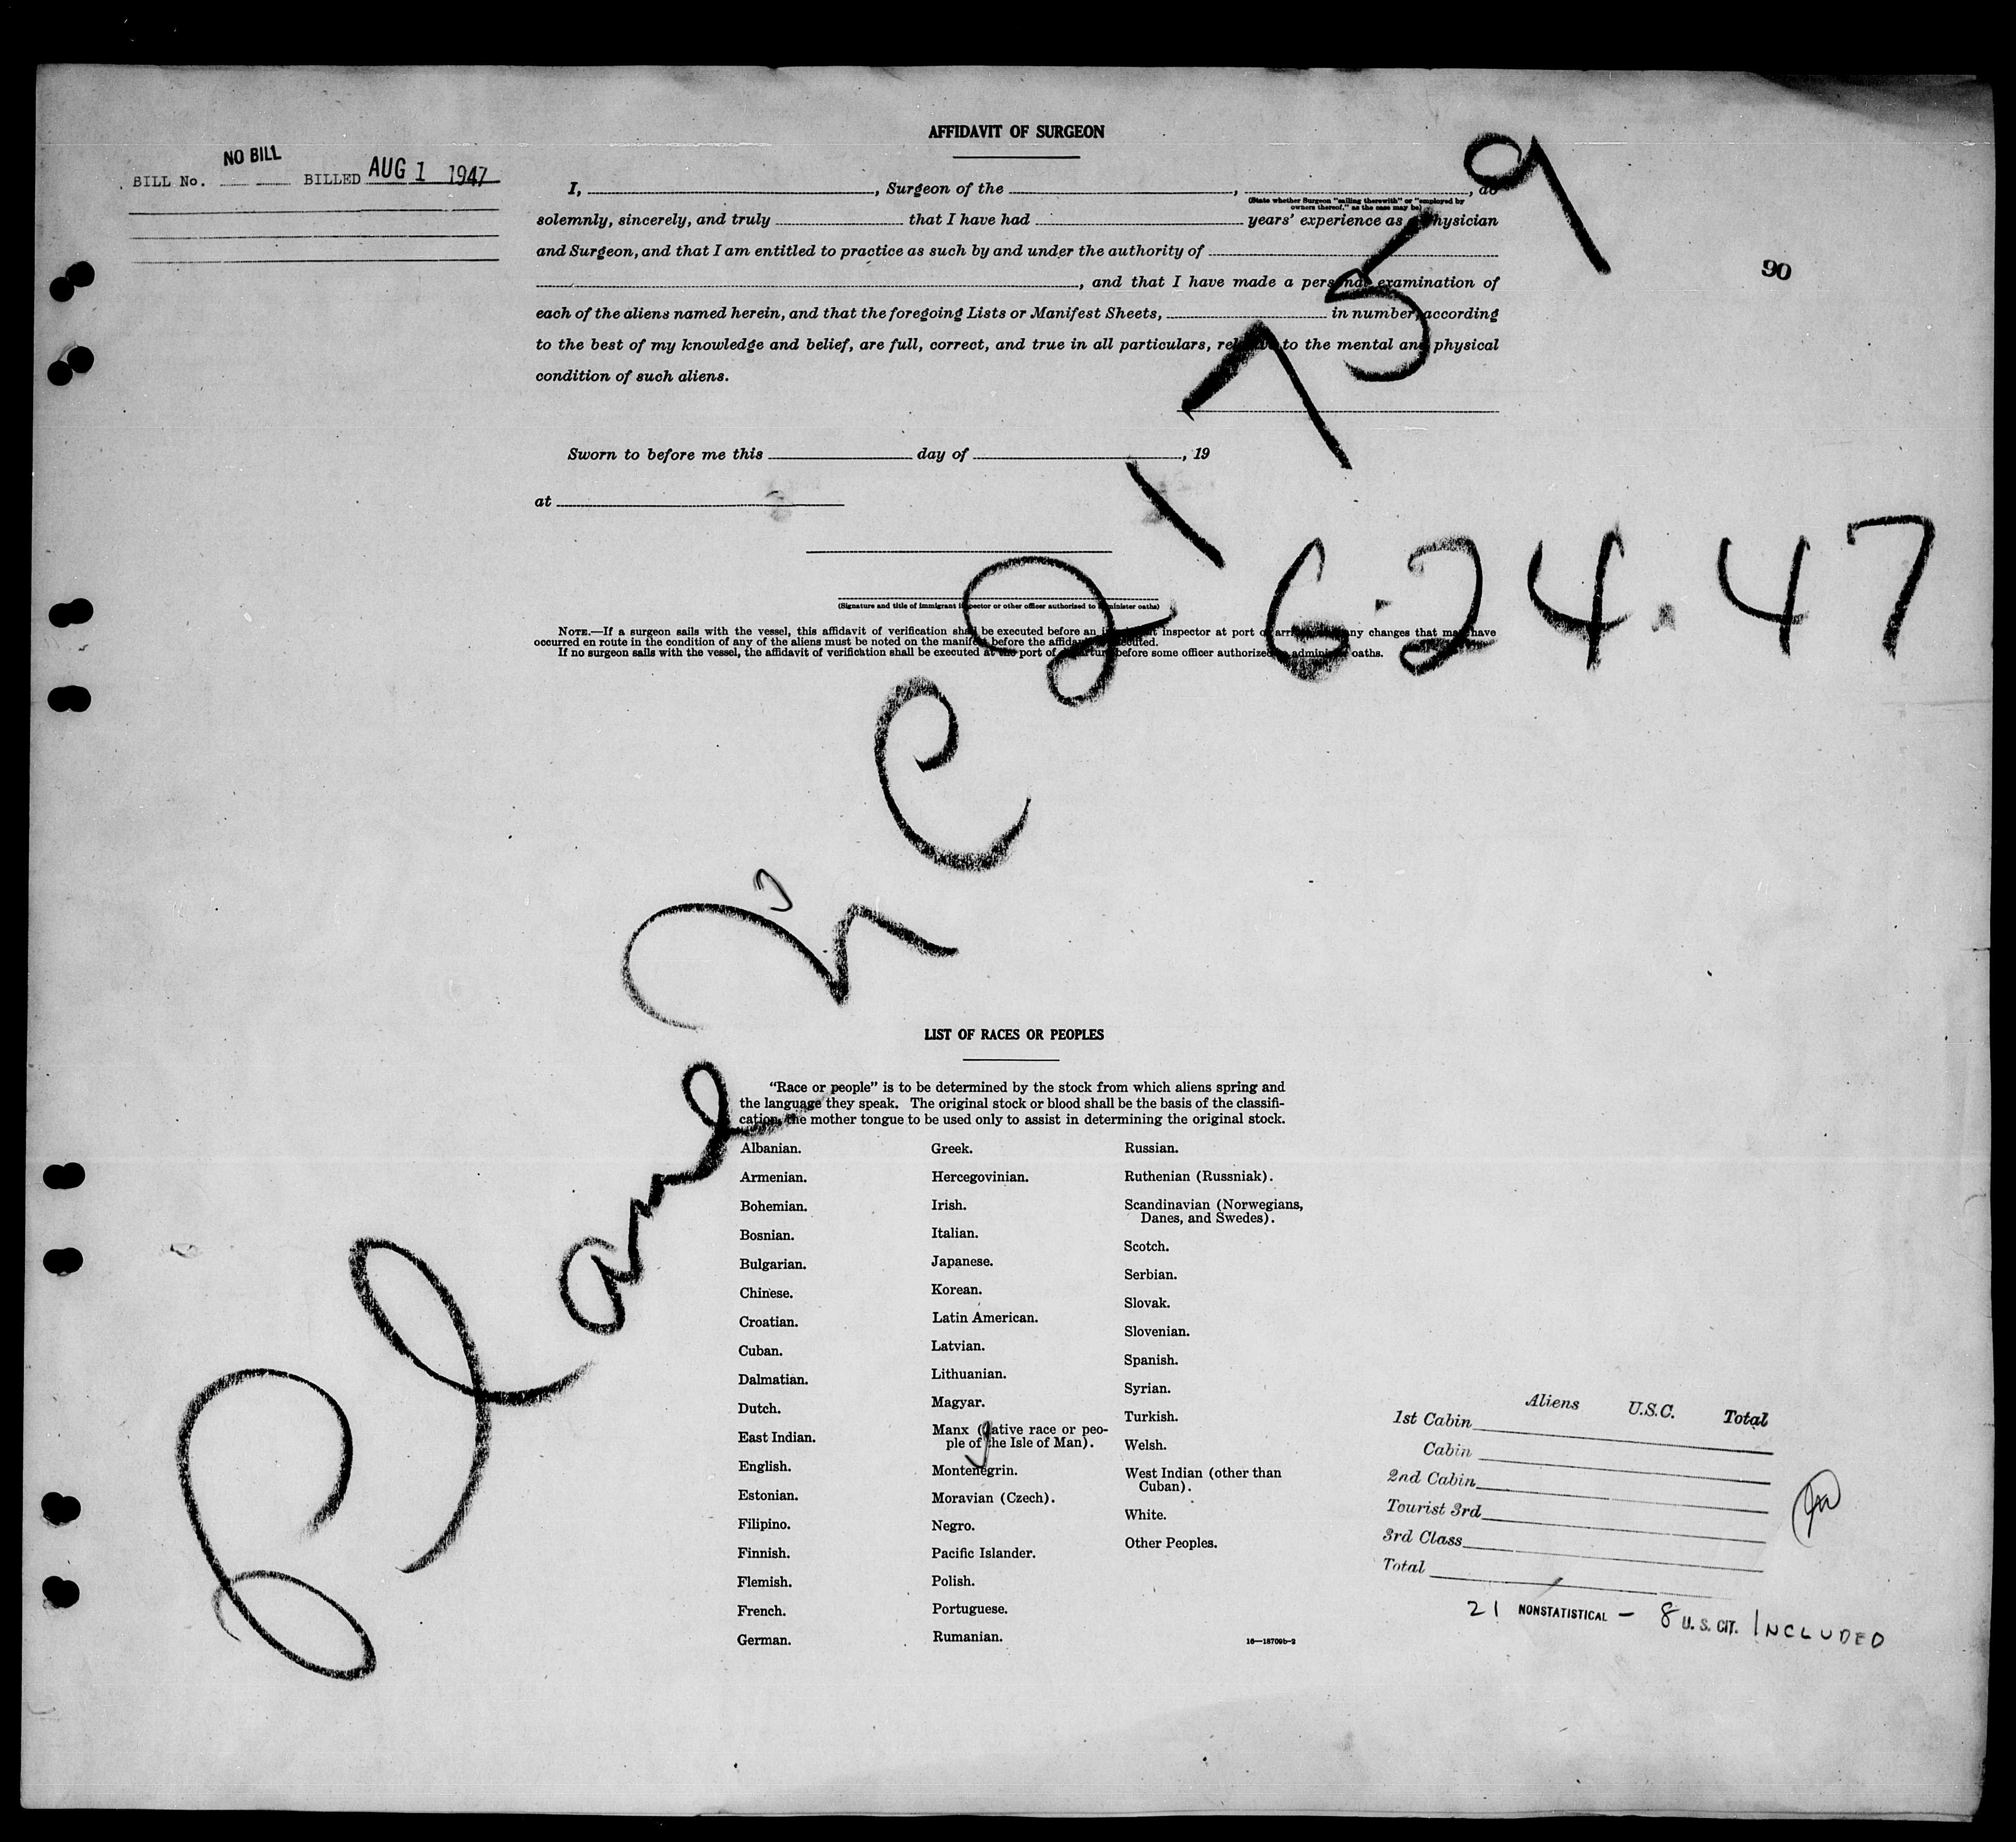 AFFIDAVIT OF SURGEON
NO BILL
BILL No. BILLED AUG 1 1947
I, , Surgeon of the , , do
(State whether Surgeon "sailing therewith" or "employed by
owners thereof," as the case may be)
solemnly, sincerely, and truly that I have had years' experience as a Physician
and Surgeon, and that I am entitled to practice as such by and under the authority of
, and that I have made a personal examination of
each of the aliens named herein, and that the foregoing Lists or Manifest Sheets, in number, according
to the best of my knowledge and belief, are full, correct, and true in all particulars, relative to the mental and physical
condition of such aliens.
90
Sworn to before me this day of , 19
at
(Signature and title of immigrant inspector or other officer authorized to administer oaths)
NOTE.—If a surgeon sails with the vessel, this affidavit of verification shall be executed before an immigrant inspector at port of arrival and any changes that may have
occurred en route in the condition of any of the aliens must be noted on the manifest before the affidavit is executed.
If no surgeon sails with the vessel, the affidavit of verification shall be executed at the port of departure before some officer authorized to administer oaths.
Plane NC 21759
6.24.47
LIST OF RACES OR PEOPLES
"Race or people" is to be determined by the stock from which aliens spring and
the language they speak. The original stock or blood shall be the basis of the classifi-
cation, the mother tongue to be used only to assist in determining the original stock.
Albanian.
Armenian.
Bohemian.
Bosnian.
Bulgarian.
Chinese.
Croatian.
Cuban.
Dalmatian.
Dutch.
East Indian.
English.
Estonian.
Filipino.
Finnish.
Flemish.
French.
German.
Greek.
Hercegovinian.
Irish.
Italian.
Japanese.
Korean.
Latin American.
Latvian.
Lithuanian.
Magyar.
Manx (native race or peo-
ple of the Isle of Man).
Montenegrin.
Moravian (Czech).
Negro.
Pacific Islander.
Polish.
Portuguese.
Rumanian.
Russian.
Ruthenian (Russniak).
Scandinavian (Norwegians,
Danes, and Swedes).
Scotch.
Serbian.
Slovak.
Slovenian.
Spanish.
Syrian.
Turkish.
Welsh.
West Indian (other than
Cuban).
White.
Other Peoples.
16—18709b-2
Aliens U.S.C. Total
1st Cabin
Cabin
2nd Cabin
Tourist 3rd
3rd Class
Total
21 NONSTATISTICAL — 8 U. S. CIT. INCLUDED